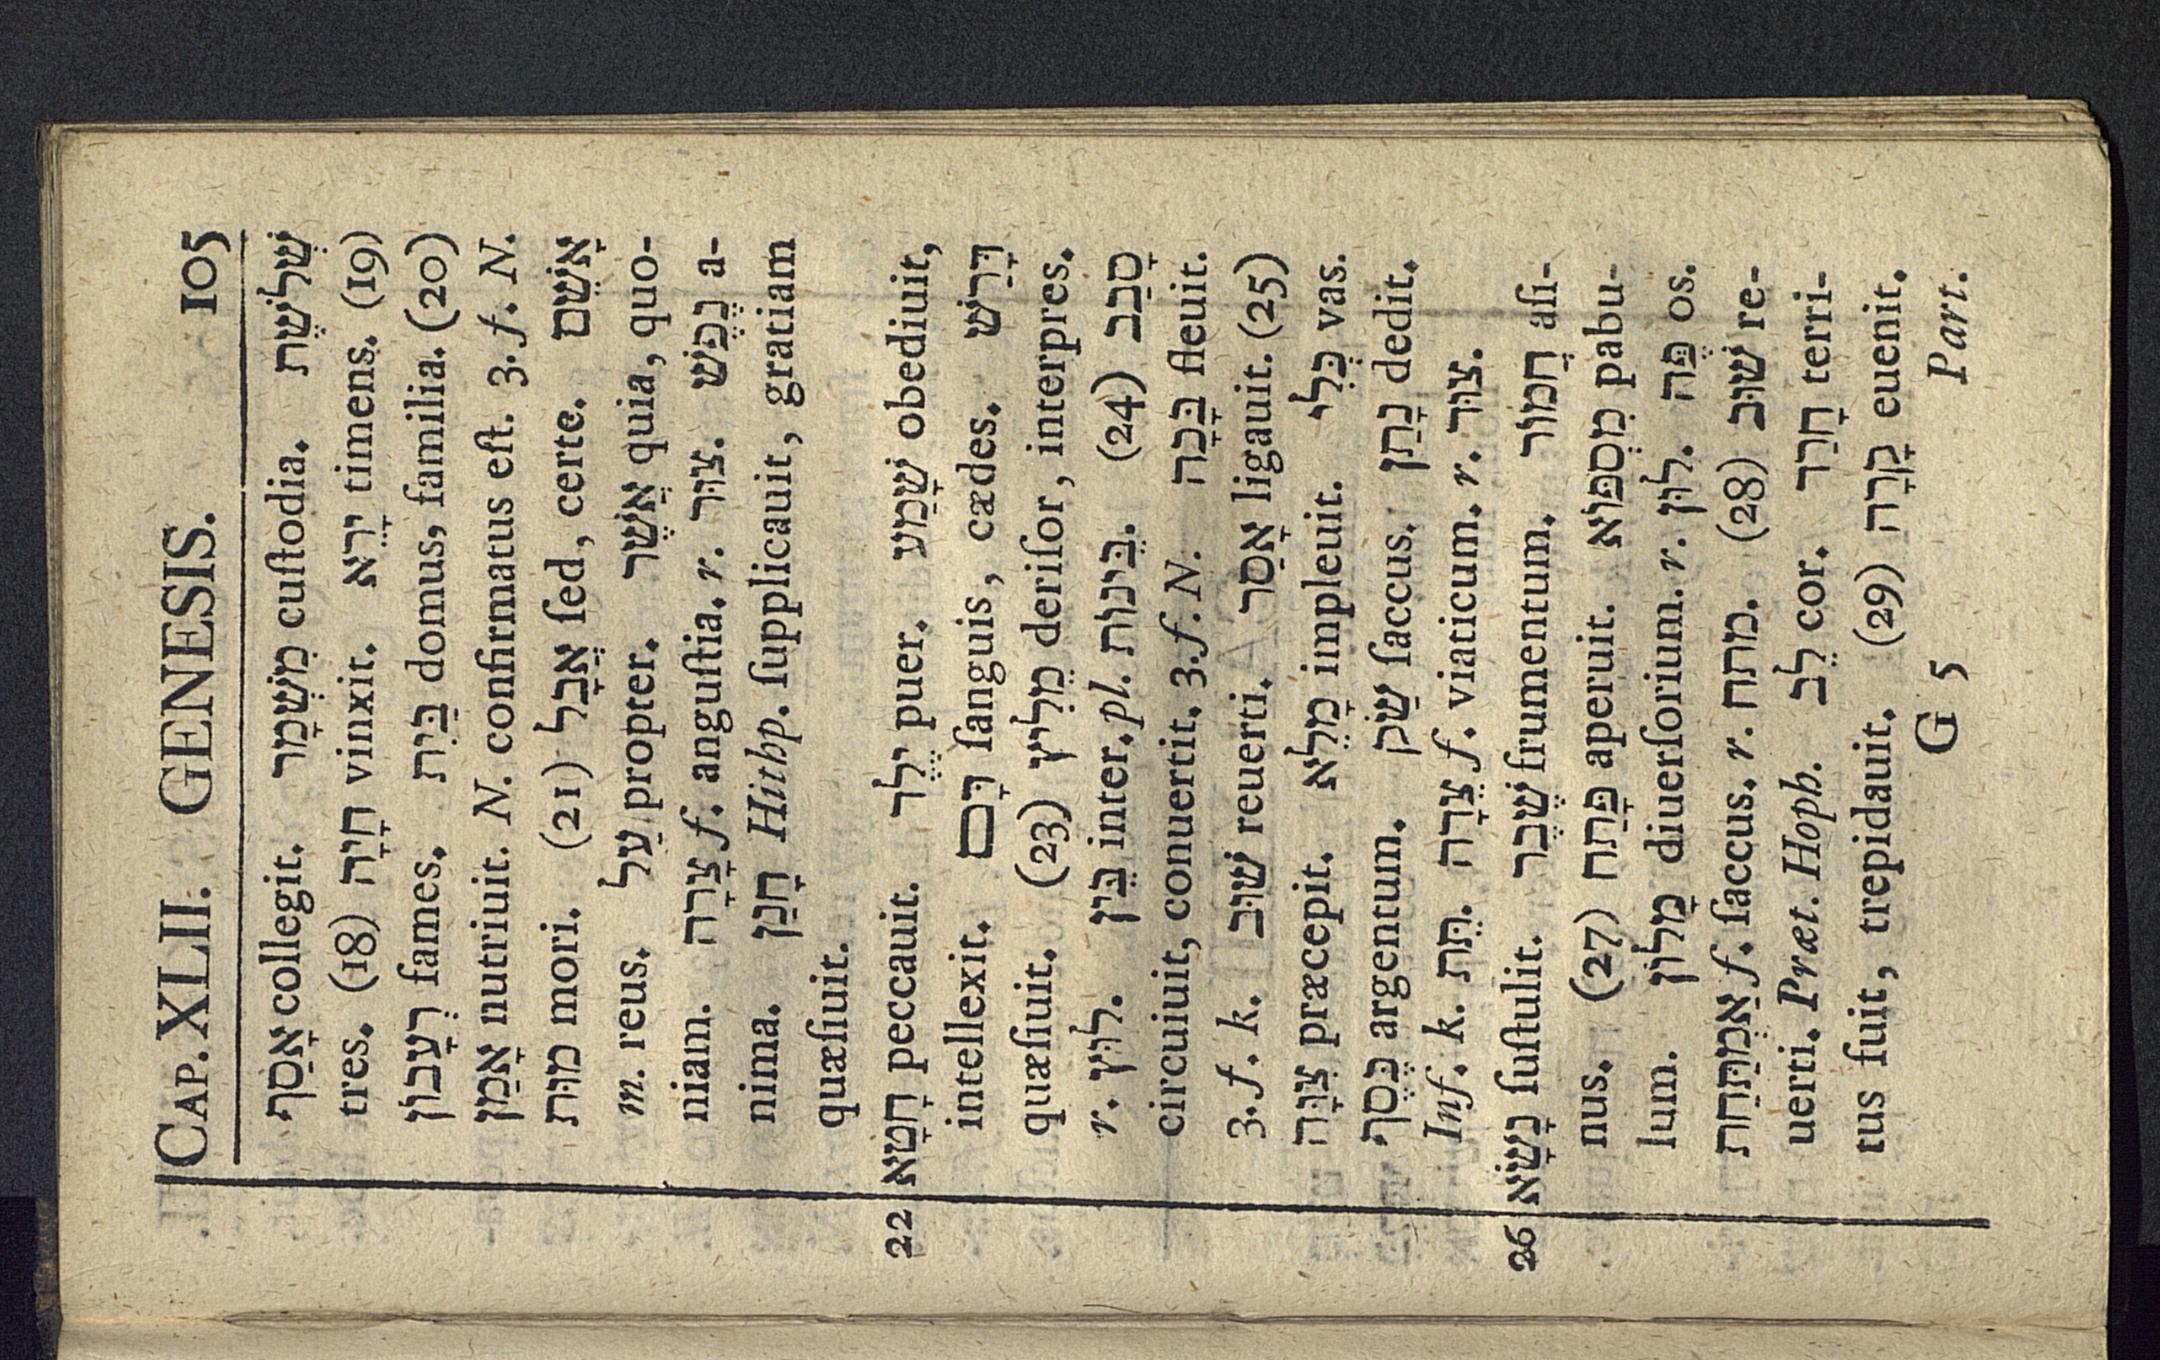 CAP. XLII. GENESIS. 105
אָסַף collegit. מִשְׁמָר cuſtodia. שְׁלֹשֶׁת
tres. (18) חָיָה vinxit. יָרֵא timens. (19)
רְעָבוֹן fames. בַּיִת domus, familia. (20)
אָמַן nutriuit. N. confirmatus eſt. 3. f. N.
מוּת mori. (21) אֲבָל ſed, certe. אָשֵׁם
m. reus. עַל propter. אֲשֶׁר quia, quo-
niam. צָרָה f. anguſtia. r. צוּר. נֶפֶשׁ a-
nima. חָנַן Hithp. ſupplicauit, gratiam
quæſiuit.
22 חָטָא peccauit. יֶלֶד puer. שָׁמַע obediuit,
intellexit. דָּם ſanguis, cædes. דָּרַשׁ
quæſiuit. (23) מֵלִיץ deriſor, interpres.
r. לוּץ. בֵּין inter. pl. בֵּינוֹת. (24) סָבַב
circuiuit, conuertit. 3. f. N. בָּכָה fleuit.
3. f. k. שׁוּב reuerti. אָסַר ligauit. (25)
צִוָּה præcepit. מָלֵא impleuit. כְּלִי vas.
כֶּסֶף argentum. שַׂק ſaccus. נָתַן dedit.
Inf. k. תֵּת. צֵרָה f. viaticum. r. צוּר.
26 נָשָׂא ſuſtulit. שֶׁבֶר frumentum. חֲמוֹר aſi-
nus. (27) פָּתַח aperuit. מִסְפּוֹא pabu-
lum. מָלוֹן diuerſorium. r. לוּן. פֶּה os.
אַמְתַּחַת f. ſaccus. r. מתח. (28) שׁוּב re-
uerti. Præt. Hoph. לֵב cor. חָרַד terri-
tus fuit, trepidauit. (29) קָרָה euenit.
G 5 Part.